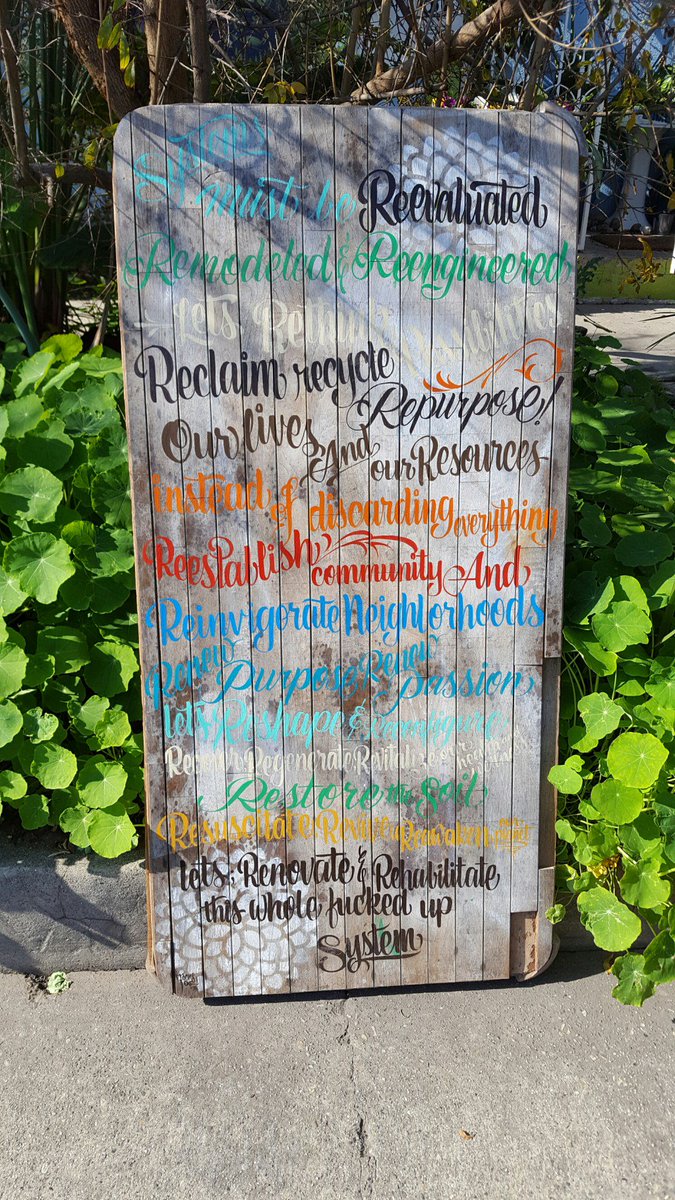 System
must be Reevaluated
Remodeled & Reengineered
Lets Rethink Possibilities
Reclaim recycle
Repurpose!
Our lives And our Resources
instead of discarding everything
Reestablish community And
Reinvigorate Neighborhoods
Renew Purpose Renew Passion
lets Reshape & Reconfigure
Regenerate Revitalize our
Restore the Soil
Resuscitate Revive & Reawaken
lets; Renovate & Rehabilitate
this whole fucked up
System